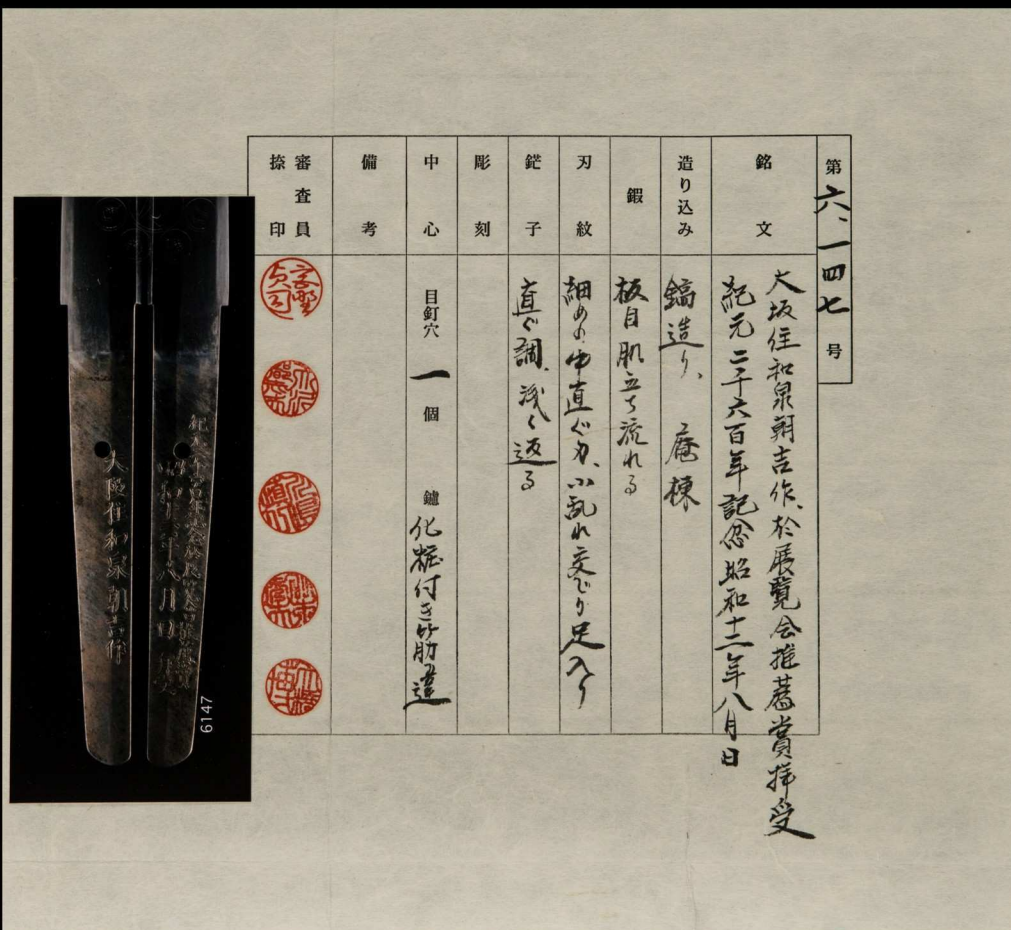 第六、一四七号
銘文
大坂住和泉朝吉作、於展覧会推薦賞拝受
紀元二千六百年記念昭和十二年八月日
造り込み
鎬造り、庵棟
鍛
板目肌立ち流れる
刃紋
細めの中直ぐ刃、小乱れ交じり足入り
鋩子
直ぐ調、浅く返る
彫刻
中心
目釘穴 一 個 鑢 化粧付き筋違
備考
審査員
捺印
大阪住和泉朝吉作
6147